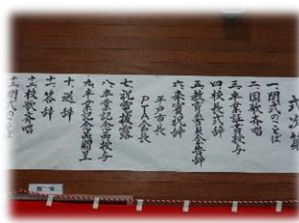 式次第
一、開式のことば
二、国歌斉唱
三、卒業証書授与
四、校長式辞
五、教育委員会告辞
六、来賓祝辞
平戸市長
PTA会長
七、祝電披露
八、卒業記念品授与
九、卒業記念品贈呈
十、送辞
十一、答辞
十二、校歌斉唱
十三、閉式のことば